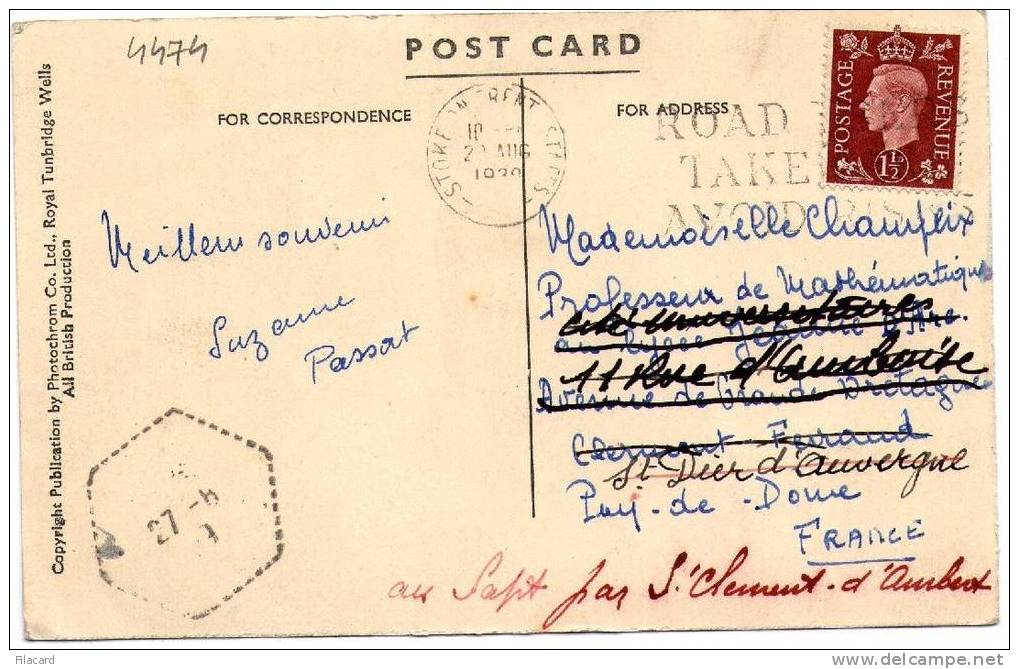 4474
POST CARD
FOR CORRESPONDENCE
FOR ADDRESS
Copyright Publication by Photochrom Co. Ltd., Royal Tunbridge Wells
All British Production
STOKE ON TRENT STAFFS
10
AUG
ROAD
TAKE
AVOID
POSTAGE
REVENUE
1½D
Meilleur souvenir
Suzanne
Passat
Mademoiselle Champeix
Professeur de Mathématiques
Cité universitaire
au Lycée Jeanne d'Arc.
11 Rue d'Amboise
Avenue de Grande Bretagne
Clermont-Ferrand
St Dier d'Auvergne
Puy-de-Dome
FRANCE
au par St Clement-d'Ambert
27-8
Filacard
delcampe.net